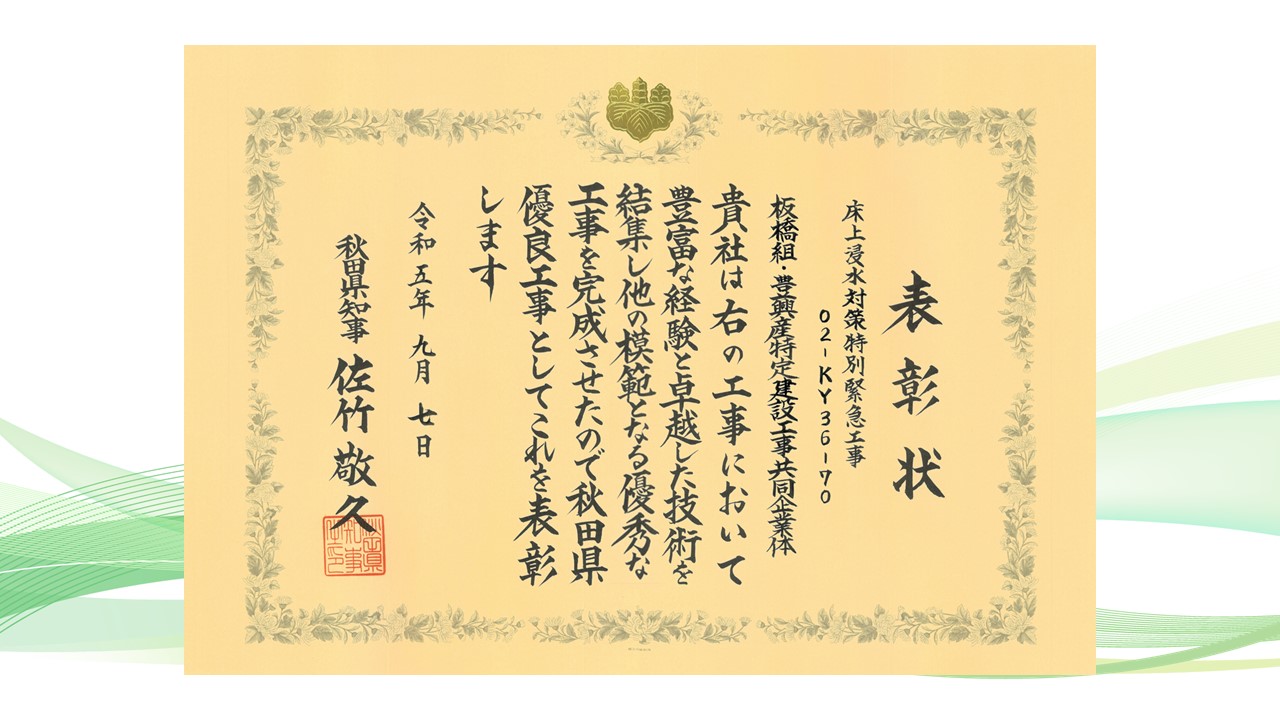 表彰状
床上浸水対策特別緊急工事
02-KY36-70
板橋組・豊興産特定建設工事共同企業体
貴社は右の工事において
豊富な経験と卓越した技術を
結集し他の模範となる優秀な
工事を完成させたので秋田県
優良工事としてこれを表彰
します
令和五年九月七日
秋田県知事 佐竹敬久